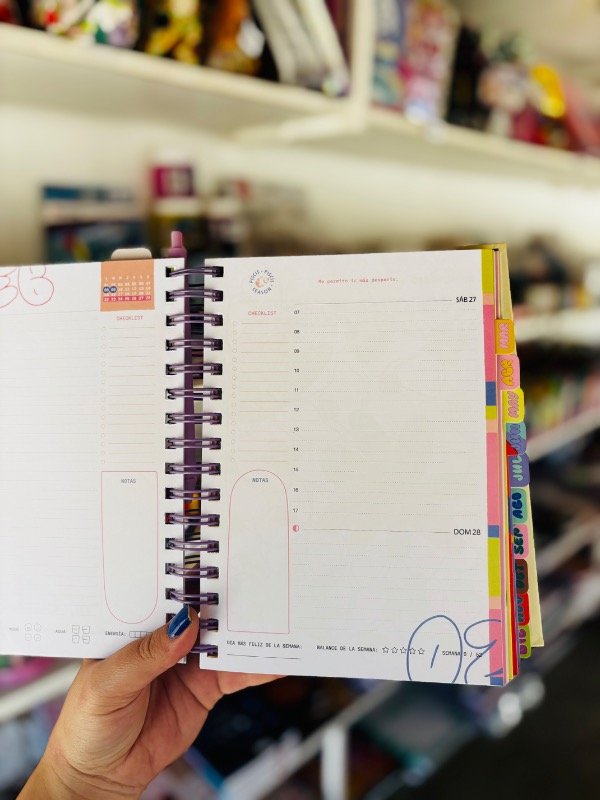 CHECKLIST
NOTAS
AGUA
ENERGÍA:
PISCIS • PISCIS
SEASON
Me permito ir más despacio.
SÁB 27
CHECKLIST
07
08
09
10
11
12
13
14
15
16
17
NOTAS
DOM 28
DÍA MÁS FELIZ DE LA SEMANA:
BALANCE DE LA SEMANA:
SEMANA
MAR
ABR
MAY
JUN
JUL
AGO
SEP
OCT
NOV
DIC